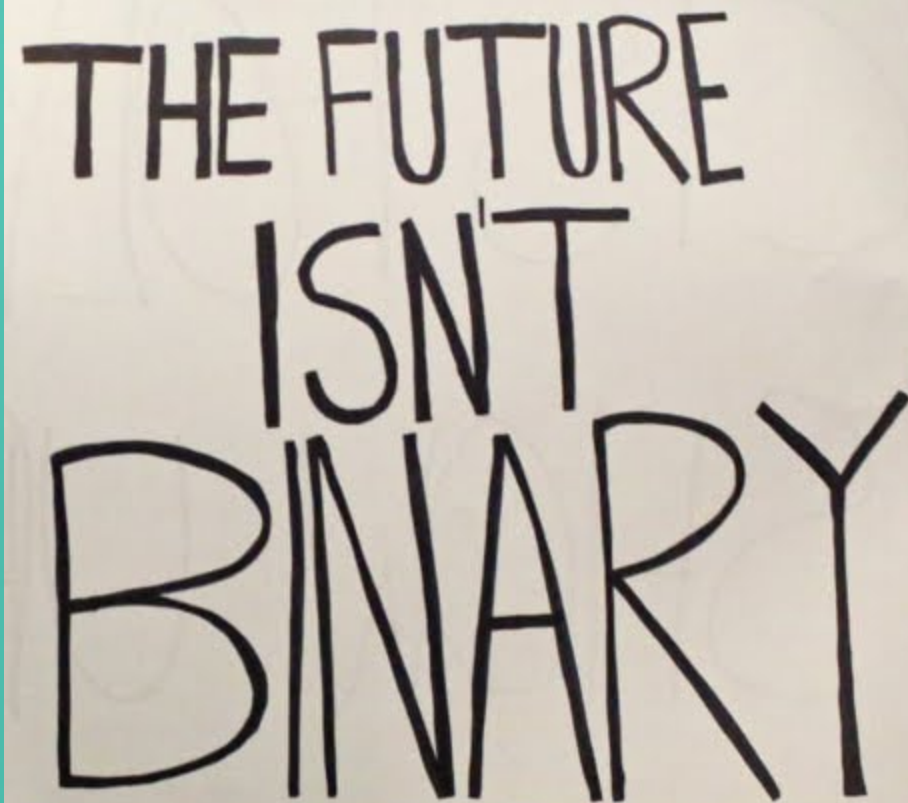 THE FUTURE
ISN'T
BINARY